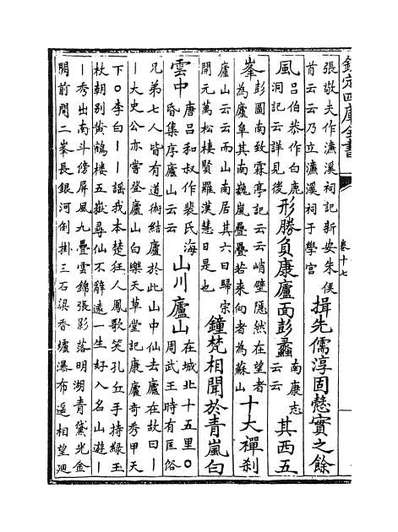 欽定四庫全書 卷十七
張敬夫作濂溪祠記新安朱侯
首云云乃立濂溪祠于學宫
揖先儒淳固慤實之餘
風
吕伯恭作白鹿
洞記云云詳見後
形勝負康廬面彭蠡
南康志
云云
其西五
峯
彭圓南敘霖亭記云云峭壁隠然在望者
為廬阜其南巍嵐疊疊若來向者為蘇山
十大禪刹
廬山云云而山南居其六曰歸宗
開元萬松棲賢羅漢慧日是也
鐘梵相聞於青嵐白
雲中
唐吕和叔作裴氏海
昏集序廬山云云
山川廬山
在城北十五里○
周武王時有匡俗
兄弟七人皆有道術結廬於此山中仙去廬在故曰丨
丨太史公亦嘗登廬山白樂天草堂記康廬奇秀甲天
下○李白丨丨謡我本楚狂人鳳歌笑孔丘手持緑玉
杖朝别黄鶴樓五嶽尋仙不辭逺一生好入名山遊丨
丨秀出南斗傍屏風九疊雲錦張影落明湖青黛光金
闕前開二峯長銀河倒掛三石梁香爐瀑布遥相望迴